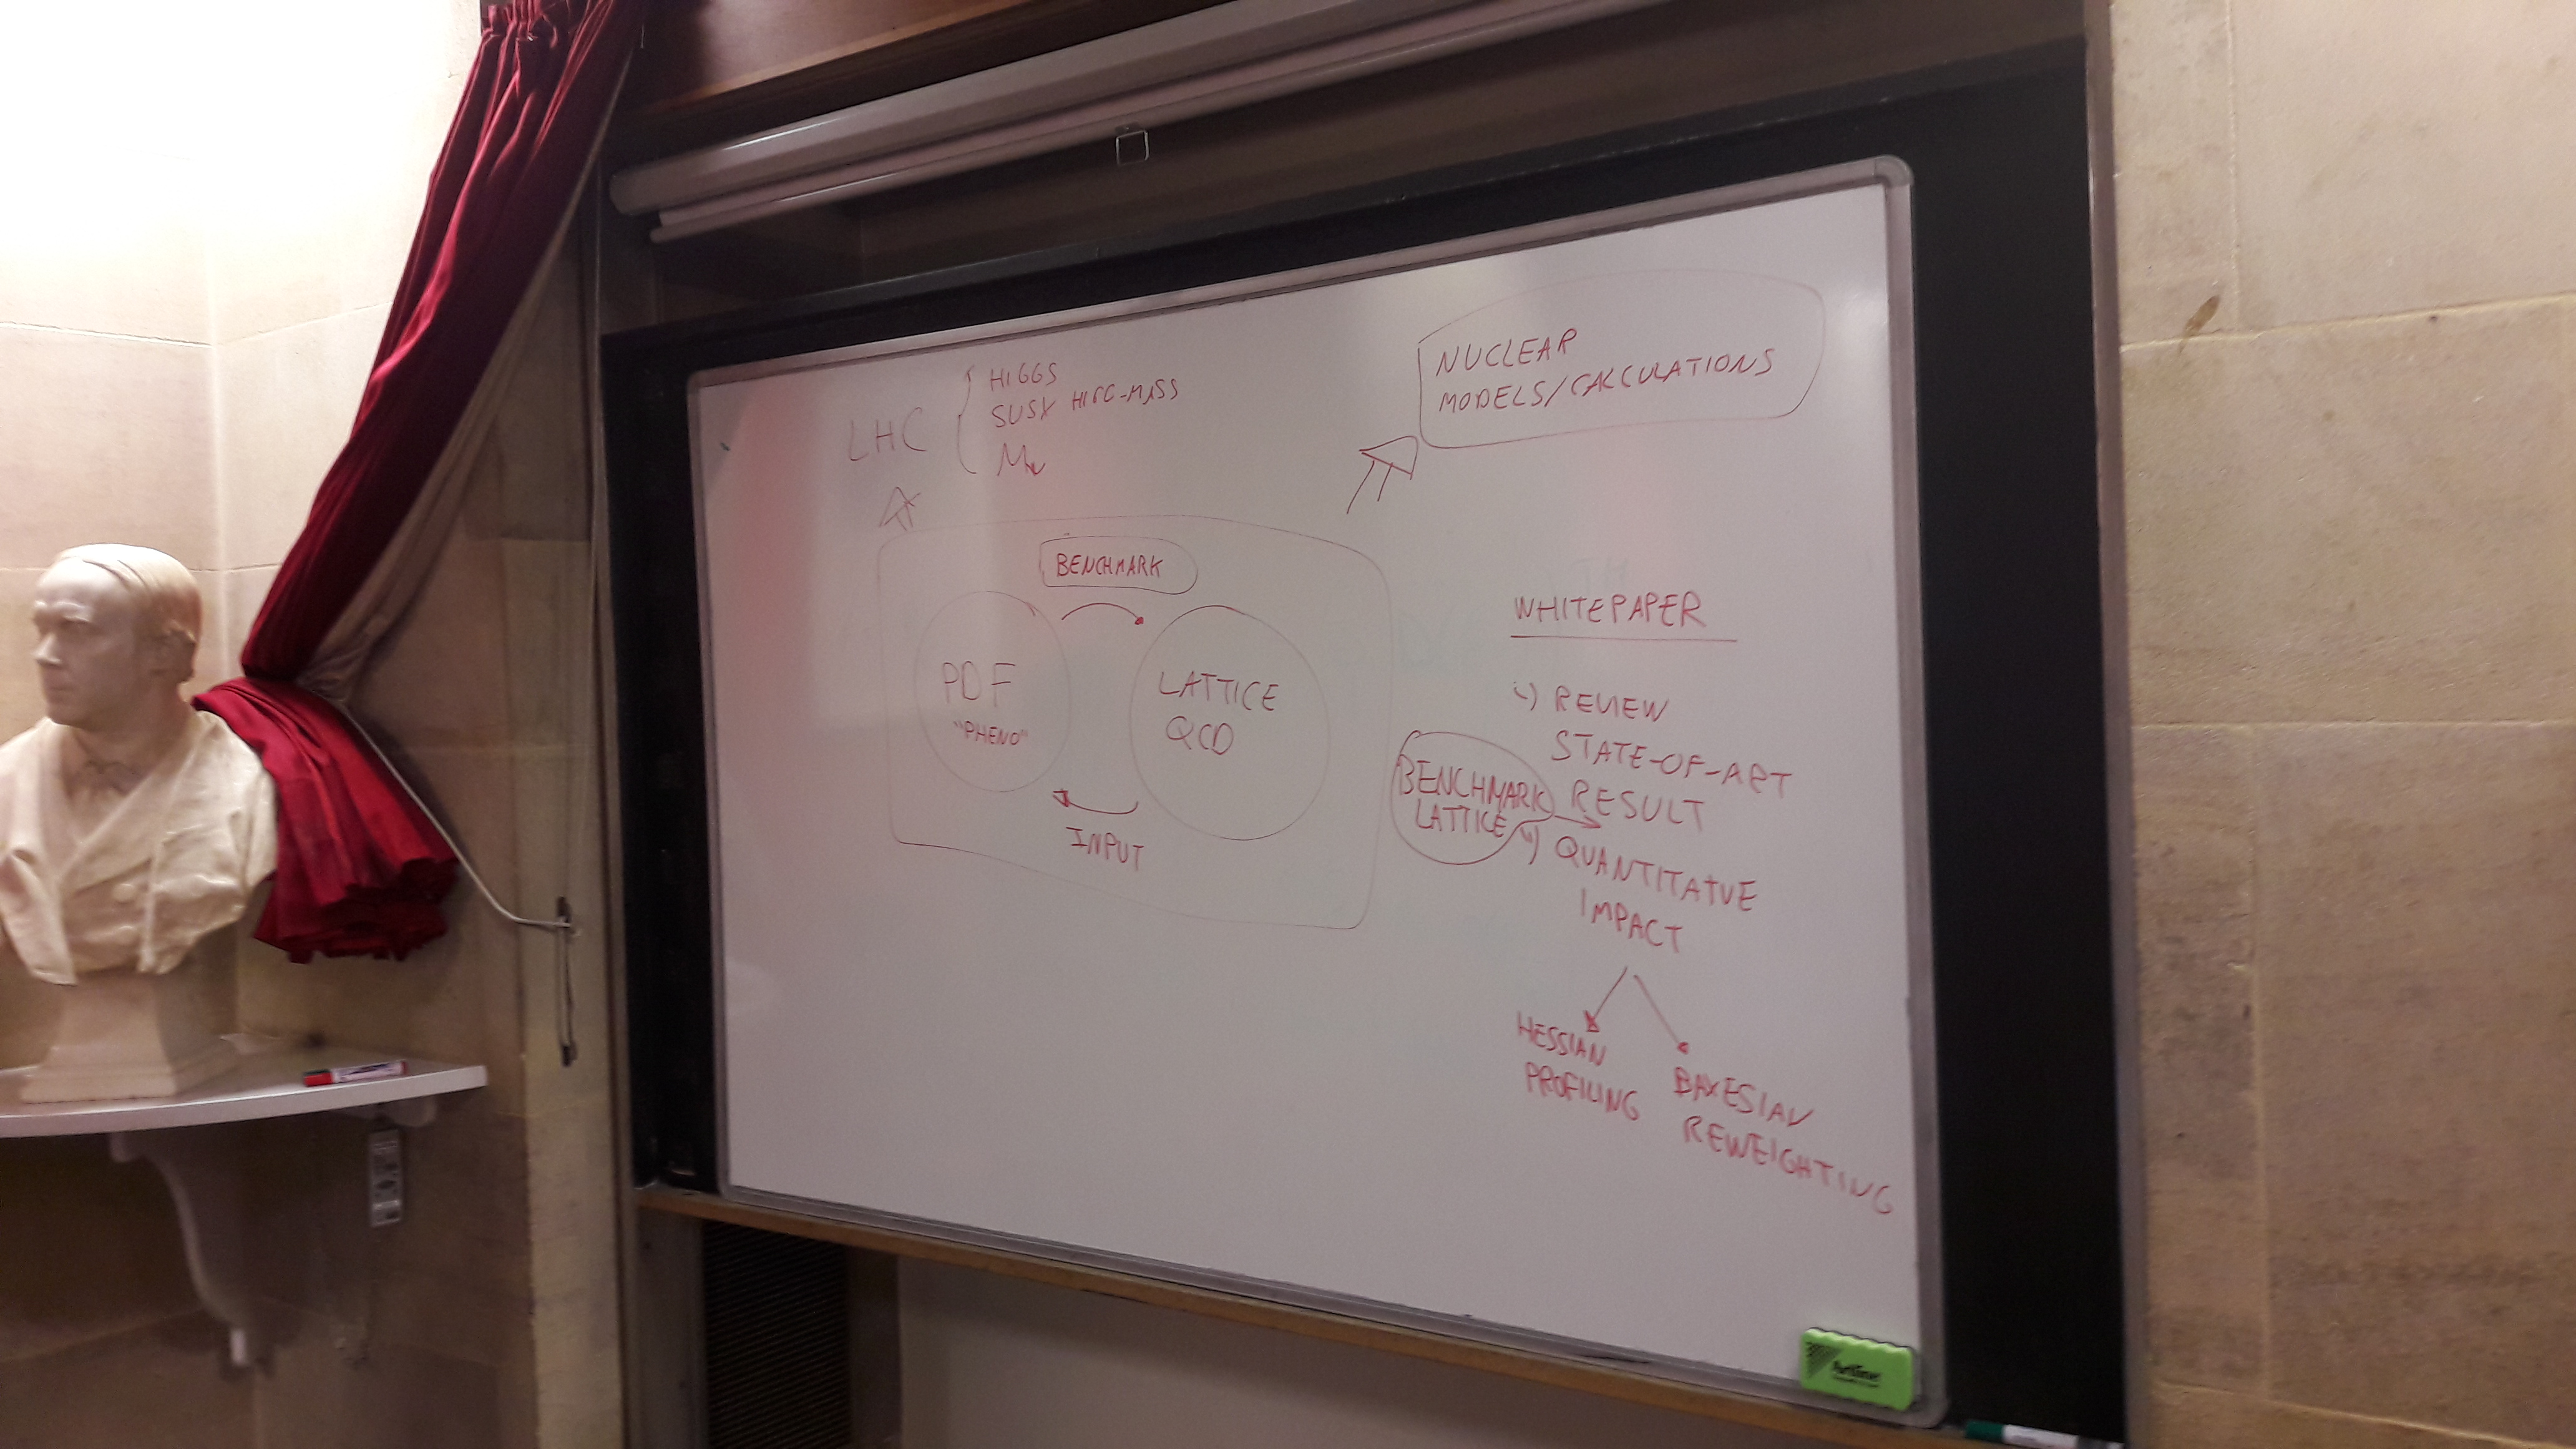 LHC
HIGGS
SUSY HIGG-MASS
Mw
NUCLEAR
MODELS/CALCULATIONS
BENCHMARK
PDF
"PHENO"
LATTICE
QCD
INPUT
WHITEPAPER
i) REVIEW
STATE-OF-ART
RESULT
BENCHMARK
LATTICE
ii) QUANTITATIVE
IMPACT
HESSIAN
PROFILING
BAYESIAN
REWEIGHTING
Artline